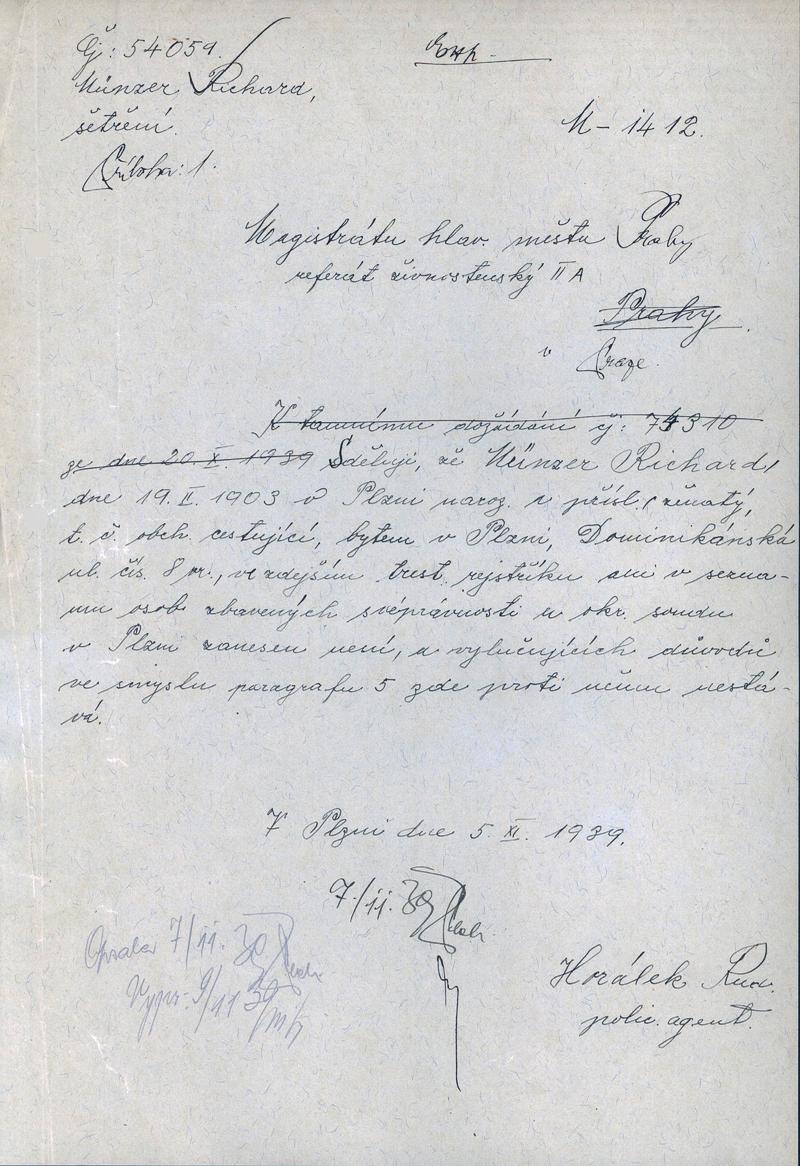 Čj: 54059.
Münzer Richard,
šetření.
Příloha: 1.
M - 1412.
Magistrátu hlav. města Prahy
referát živnostenský II A
Prahy.
v Praze.
K tamnímu dožádání čj: 74310
ze dne 20. X. 1939 Sděluji, že Münzer Richard,
dne 19. II. 1903 v Plzni naroz. a přísl., ženatý,
t. č. obch. cestující, bytem v Plzni, Dominikánská
ul. čís. 8 pr., ve zdejším trest. rejstříku ani v sezna-
mu osob zbavených svéprávnosti u okr. soudu
v Plzni zanesen není, a vylučujících důvodů
ve smyslu paragrafu 5 zde proti němu nestá-
vá.
V Plzni dne 5. XI. 1939.
7./11. 39
Opsala 7/11. 39
Vypr. 9/11 39
Horálek Rud.
polic. agent.